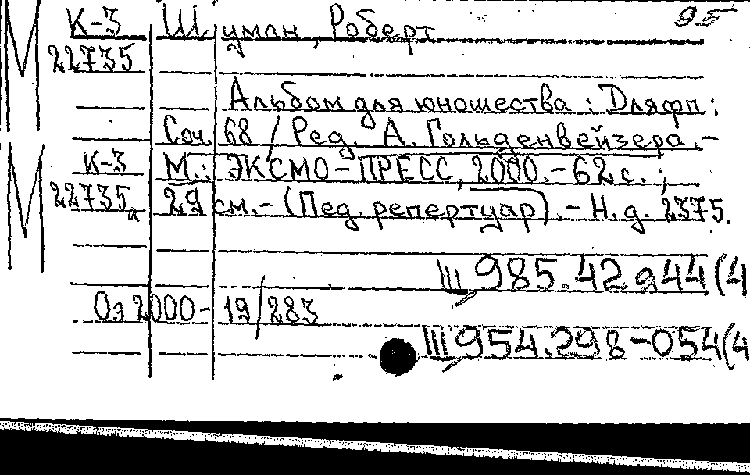 К-3 Шуман, Роберт 95
22735
Альбом для юношества : Для фп ;
Соч. 68 / Ред. А. Гольденвейзера .-
К-3 М.: ЭКСМО-ПРЕСС, 2000.-62 с. ;
22735а 29 см.- (Пед. репертуар) .- Н. д. 2375.
III 985.42 я44(4
Оз 2000- 19/283
III 954.298-054(4
М
М